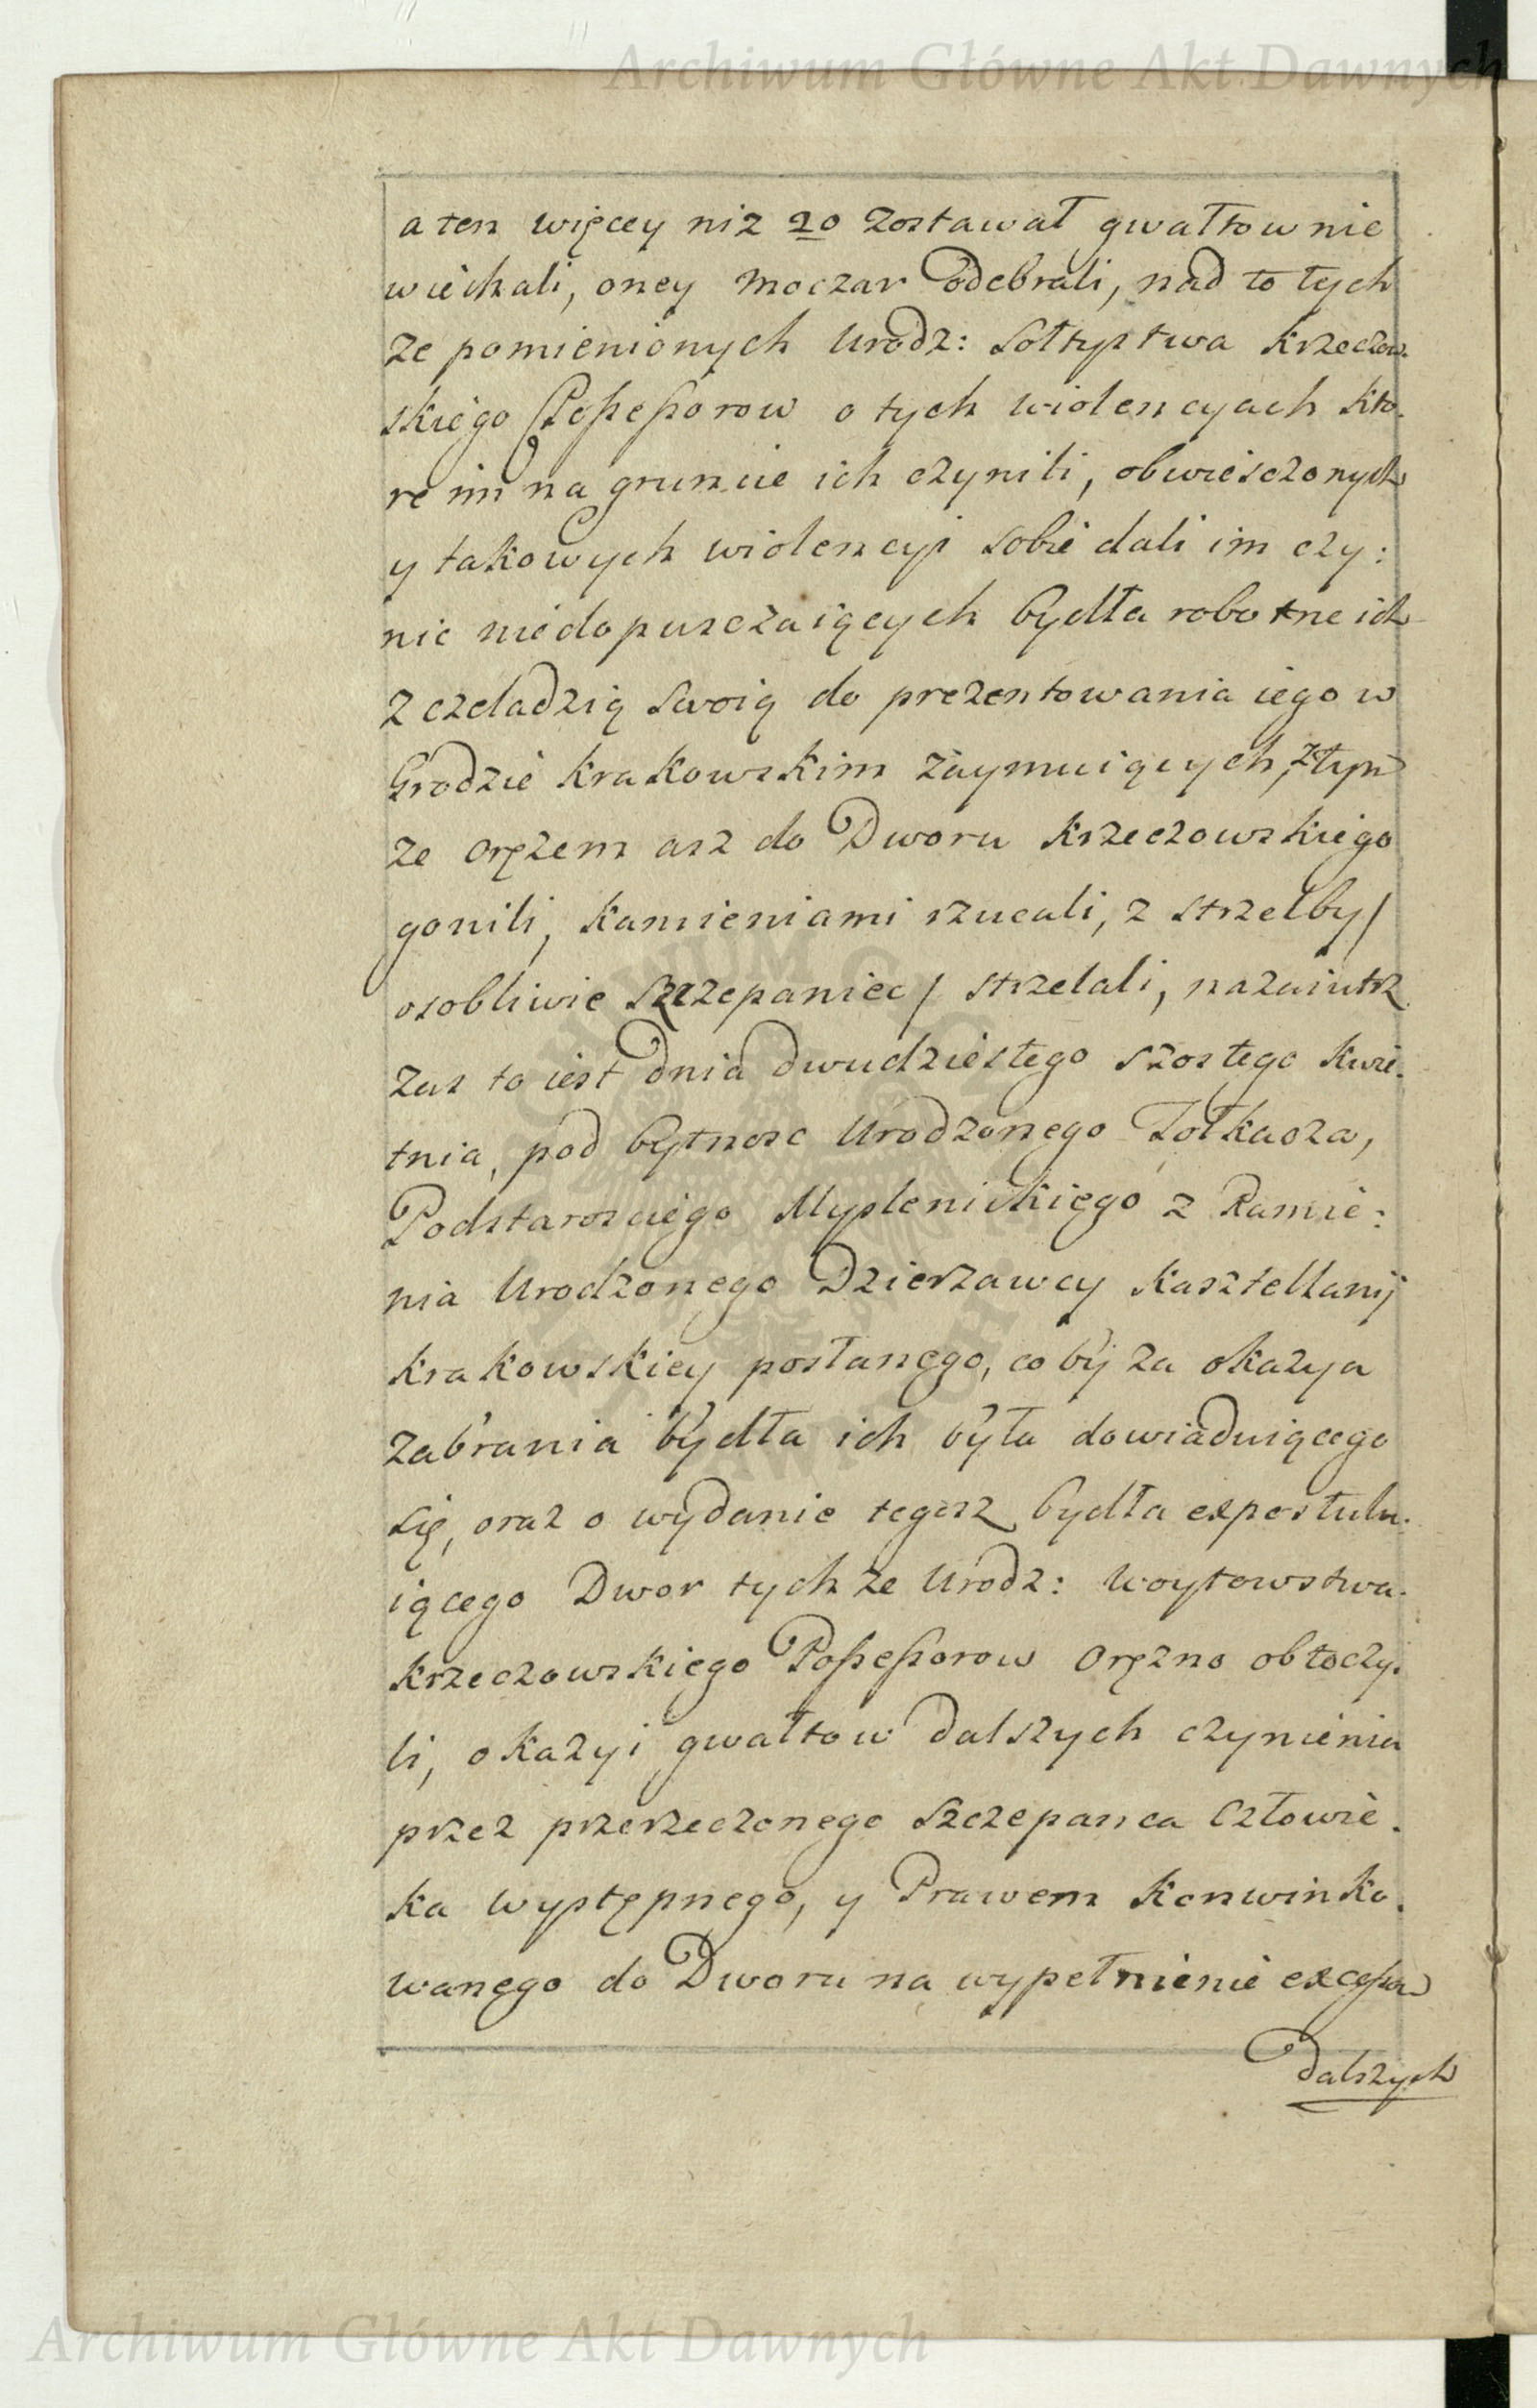 Archiwum Główne Akt Dawnych
a ten więcey niz 20 zostawał gwałtownie
wiechali, oney moczar odebrali, nad to tych
ze pomienionych Urodz: Sołtystwa Krzeczow.
skiego Poßeßorow o tych wiolencyach kto.
re im na gruncie ich czynili, obwiesczonych
y takowych wiolencyi sobie dali im czy:
nic niedopuszczaiących bydła robotne ich
z czeladzią swoią do prezentowania iego w
Grodzie Krakowskim zaymuiących, z tym
ze orężem asz do Dworu Krzeczowskiego
gonili, kamieniami rzucali, z strzelby/
osobliwie Szczepaniec/ strzelali, nazaiutrz
zas to iest dnia dwudziestego szostego Kwie.
tnia, pod bytnosc Urodzonego Tołkacza,
Podstarosciego Myslenickiego z Ramie:
nia Urodzonego Dzierzawcy Kasztellanij
Krakowskiey posłanego, co by za okazya
zabrania bydła ich była dowiaduiącego
się, oraz o wydanie tegosz bydła expostulu.
iącego Dwor tych ze Urodz: Woytowstwa.
Krzeczowskiego Poßeßorow orężno obtoczy.
li, okazyi gwałtow dalszych czynienia
przez przerzeczonego Szczepanca Człowie.
ka występnego, y Prawem konwinko.
wanego do Dworu na wypełnienie exceßow
dalszych
Archiwum Główne Akt Dawnych